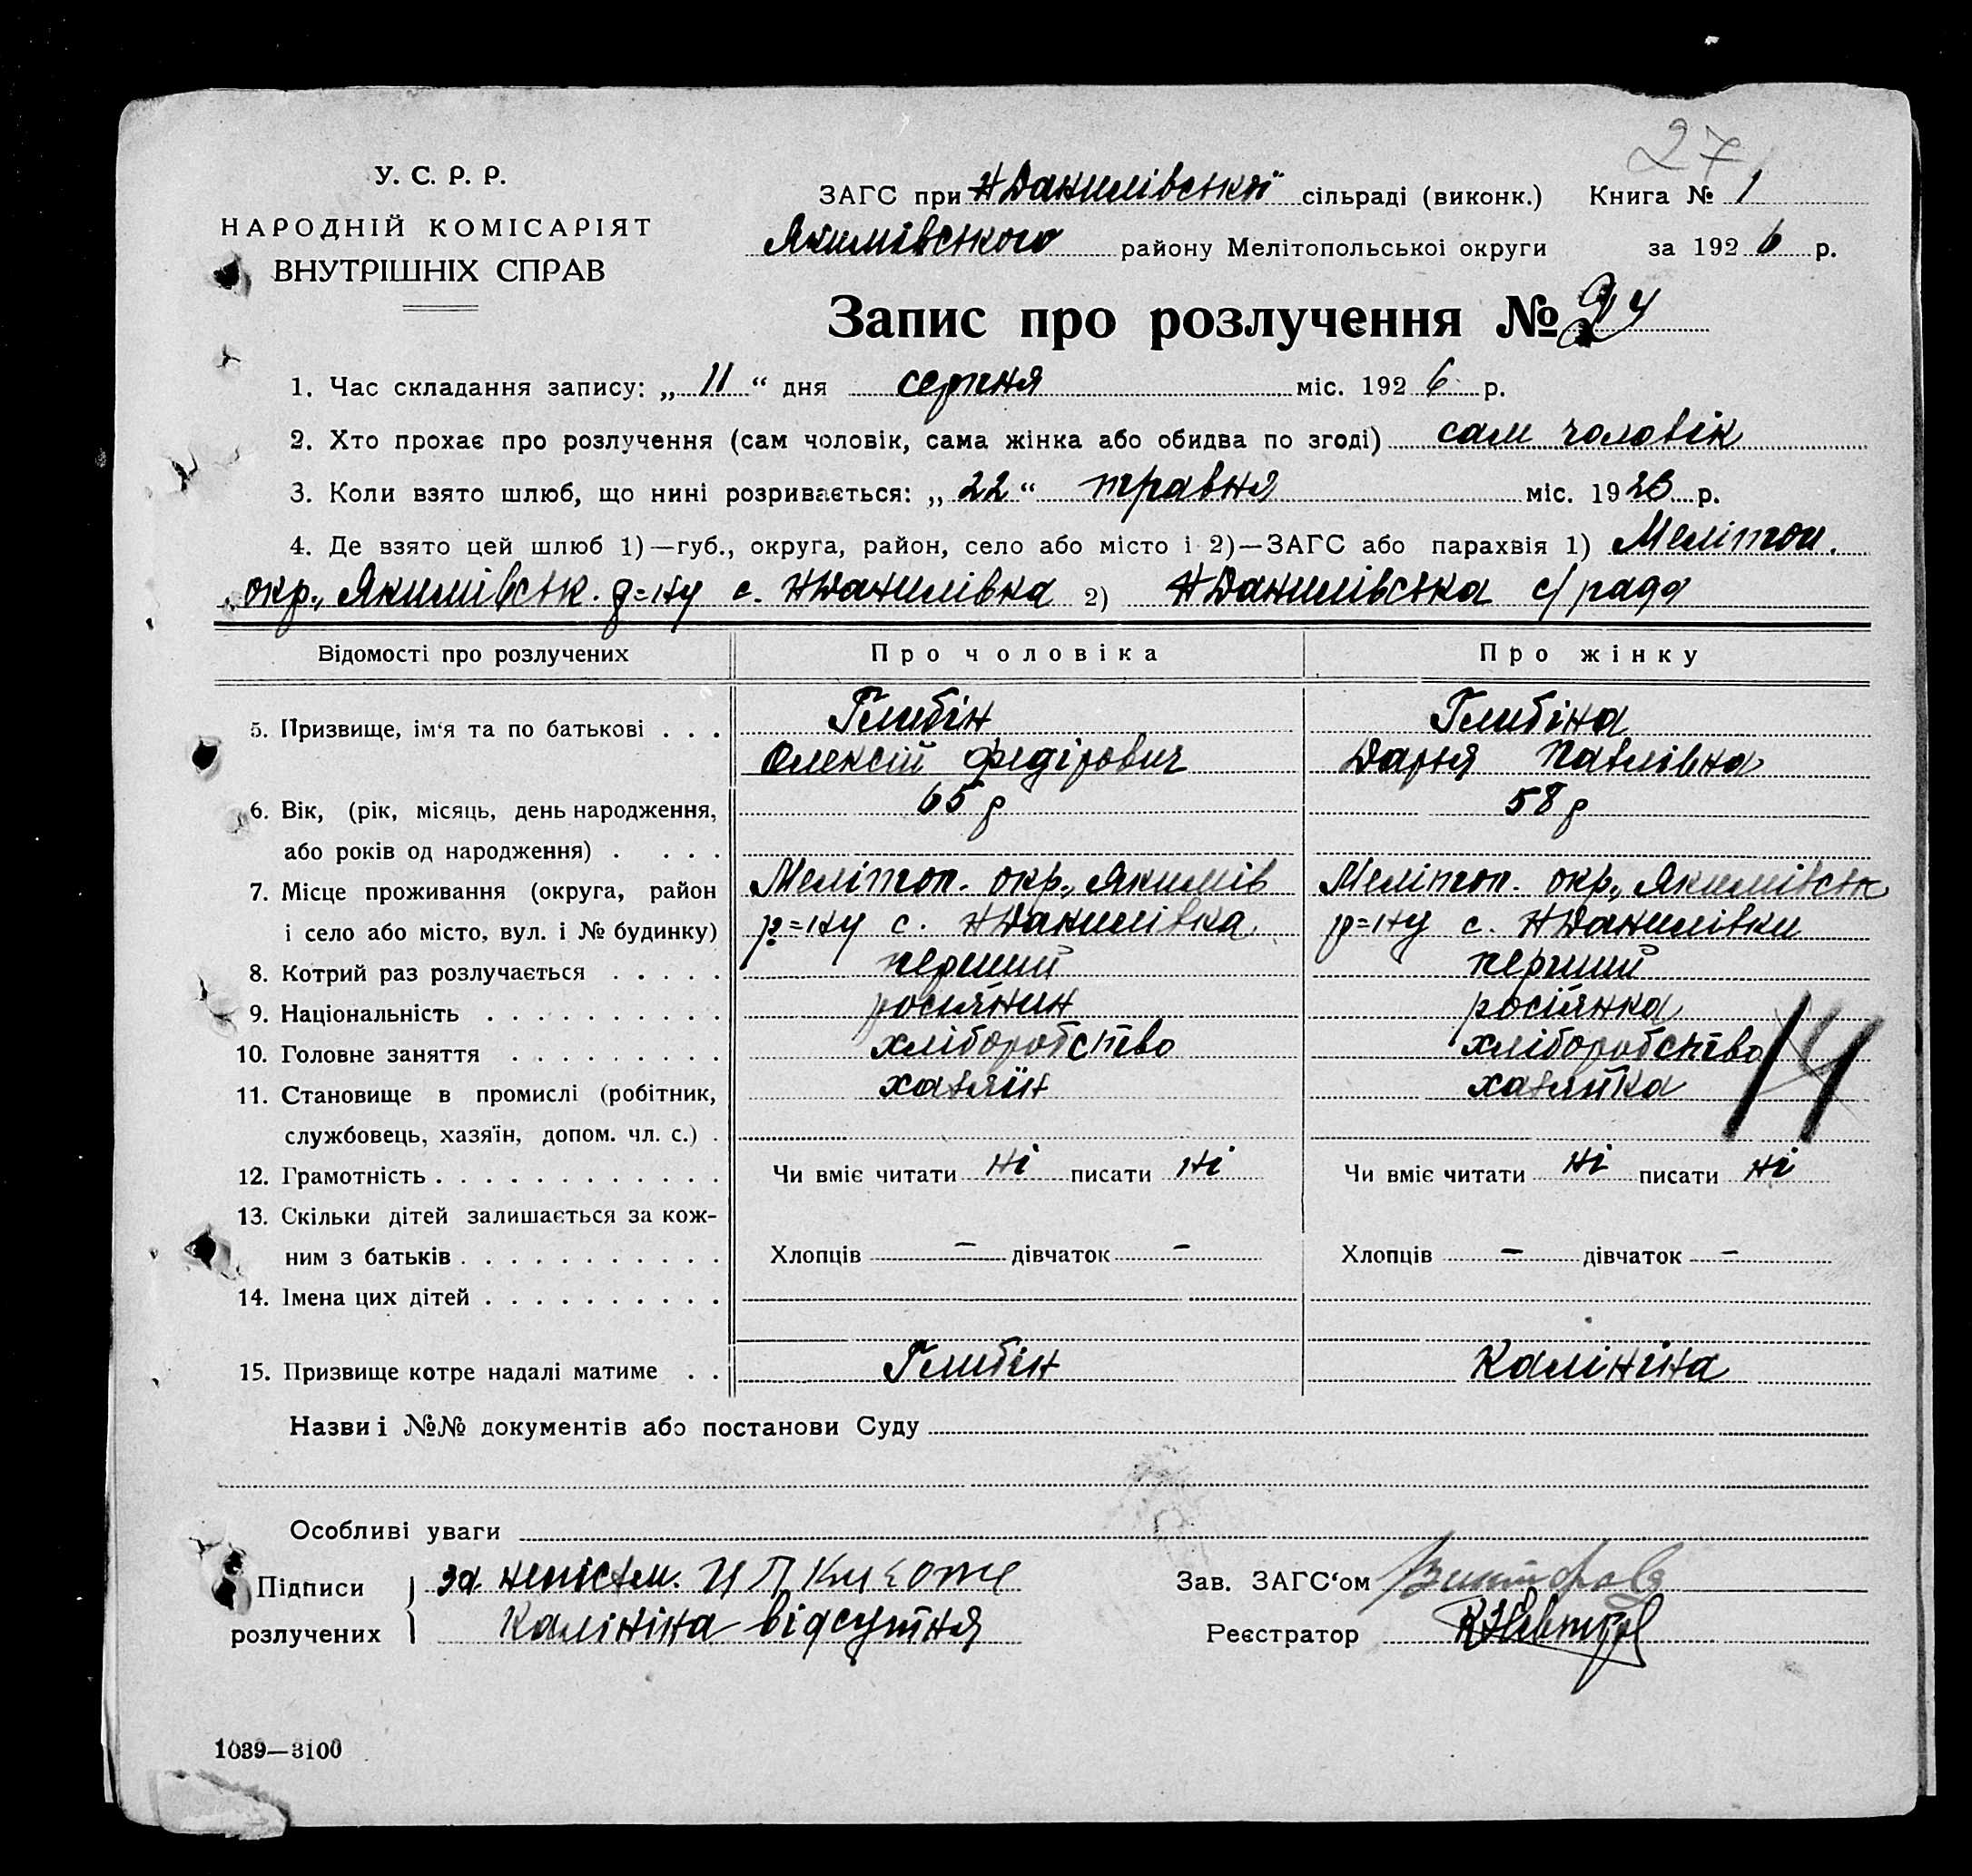 27
У. С. Р. Р.
НАРОДНІЙ КОМІСАРІЯТ
ВНУТРІШНІХ СПРАВ
ЗАГС при НДанилівській сільраді (виконк.) Книга № 1
Якимівського району Мелітопольської округи за 1926 р.
Запис про розлучення № 24
1. Час складання запису: „11“ дня серпня міс. 1926 р.
2. Хто прохає про розлучення (сам чоловік, сама жінка або обидва по згоді) сам чоловік
3. Коли взято шлюб, що нині розривається: „22“ травня міс. 1923 р.
4. Де взято цей шлюб 1)—губ., округа, район, село або місто і 2)—ЗАГС або парахвія 1) Мелітоп.
окр., Якимівськ. р=ну с. НДанилівка 2) НДанилівська с/рада
Відомості про розлучених Про чоловіка Про жінку
Глибін Глибіна
5. Призвище, ім‘я та по батькові . . .
Олексій Федірович Дарья Павлівна
6. Вік, (рік, місяць, день народження, 65 р 58 р
або років од народження) . . . .
7. Місце проживання (округа, район Мелітоп. окр., Якимів Мелітоп. окр., Якимівськ
і село або місто, вул. і № будинку) р=ну с. НДанилівка р=ну с. НДанилівки
8. Котрий раз розлучається . . . . . перший перший
9. Національність . . . . . . . . . . росіянин росіянка
10. Головне заняття . . . . . . . . . хліборобство хліборобство
11. Становище в промислі (робітник, хазяїн хазяйка
службовець, хазяїн, допом. чл. с.) .
12. Грамотність . . . . . . . . . . . . Чи вміє читати ні писати ні Чи вміє читати ні писати ні
13. Скільки дітей залишається за кож-
ним з батьків . . . . . . . . . . . Хлопців — дівчаток — Хлопців — дівчаток —
14. Імена цих дітей . . . . . . . . . .
15. Призвище котре надалі матиме . . Глибін Калініна
Назви і №№ документів або постанови Суду
Особливі уваги
Підписи за неписьм. Зав. ЗАГС‘ом
розлучених Калініна відсутня Реєстратор
1039—3100